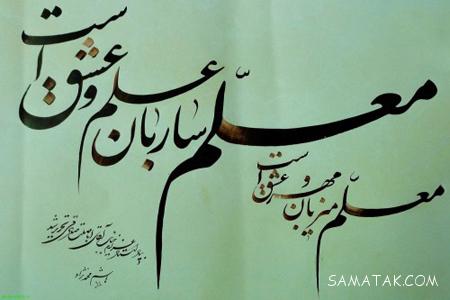 معلّم ساربان علم و عشق است
معلّم میزبان مهر و عشق است
SAMATAK.COM